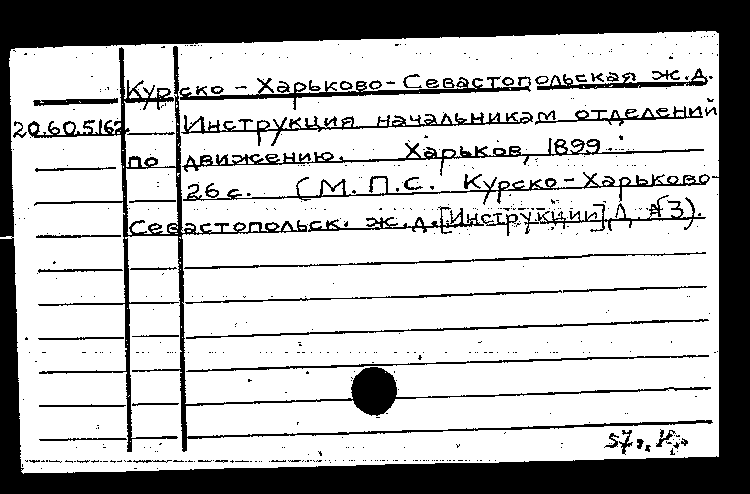 Курско - Харьково- Севастопольская ж.д.
20.60.5.162. Инструкция начальникам отделений
по движению. Харьков, 1899.
26 с. (М.П.С. Курско-Харьково-
Севастопольск. ж.д. [Инструкции], Д. №3).
57г.